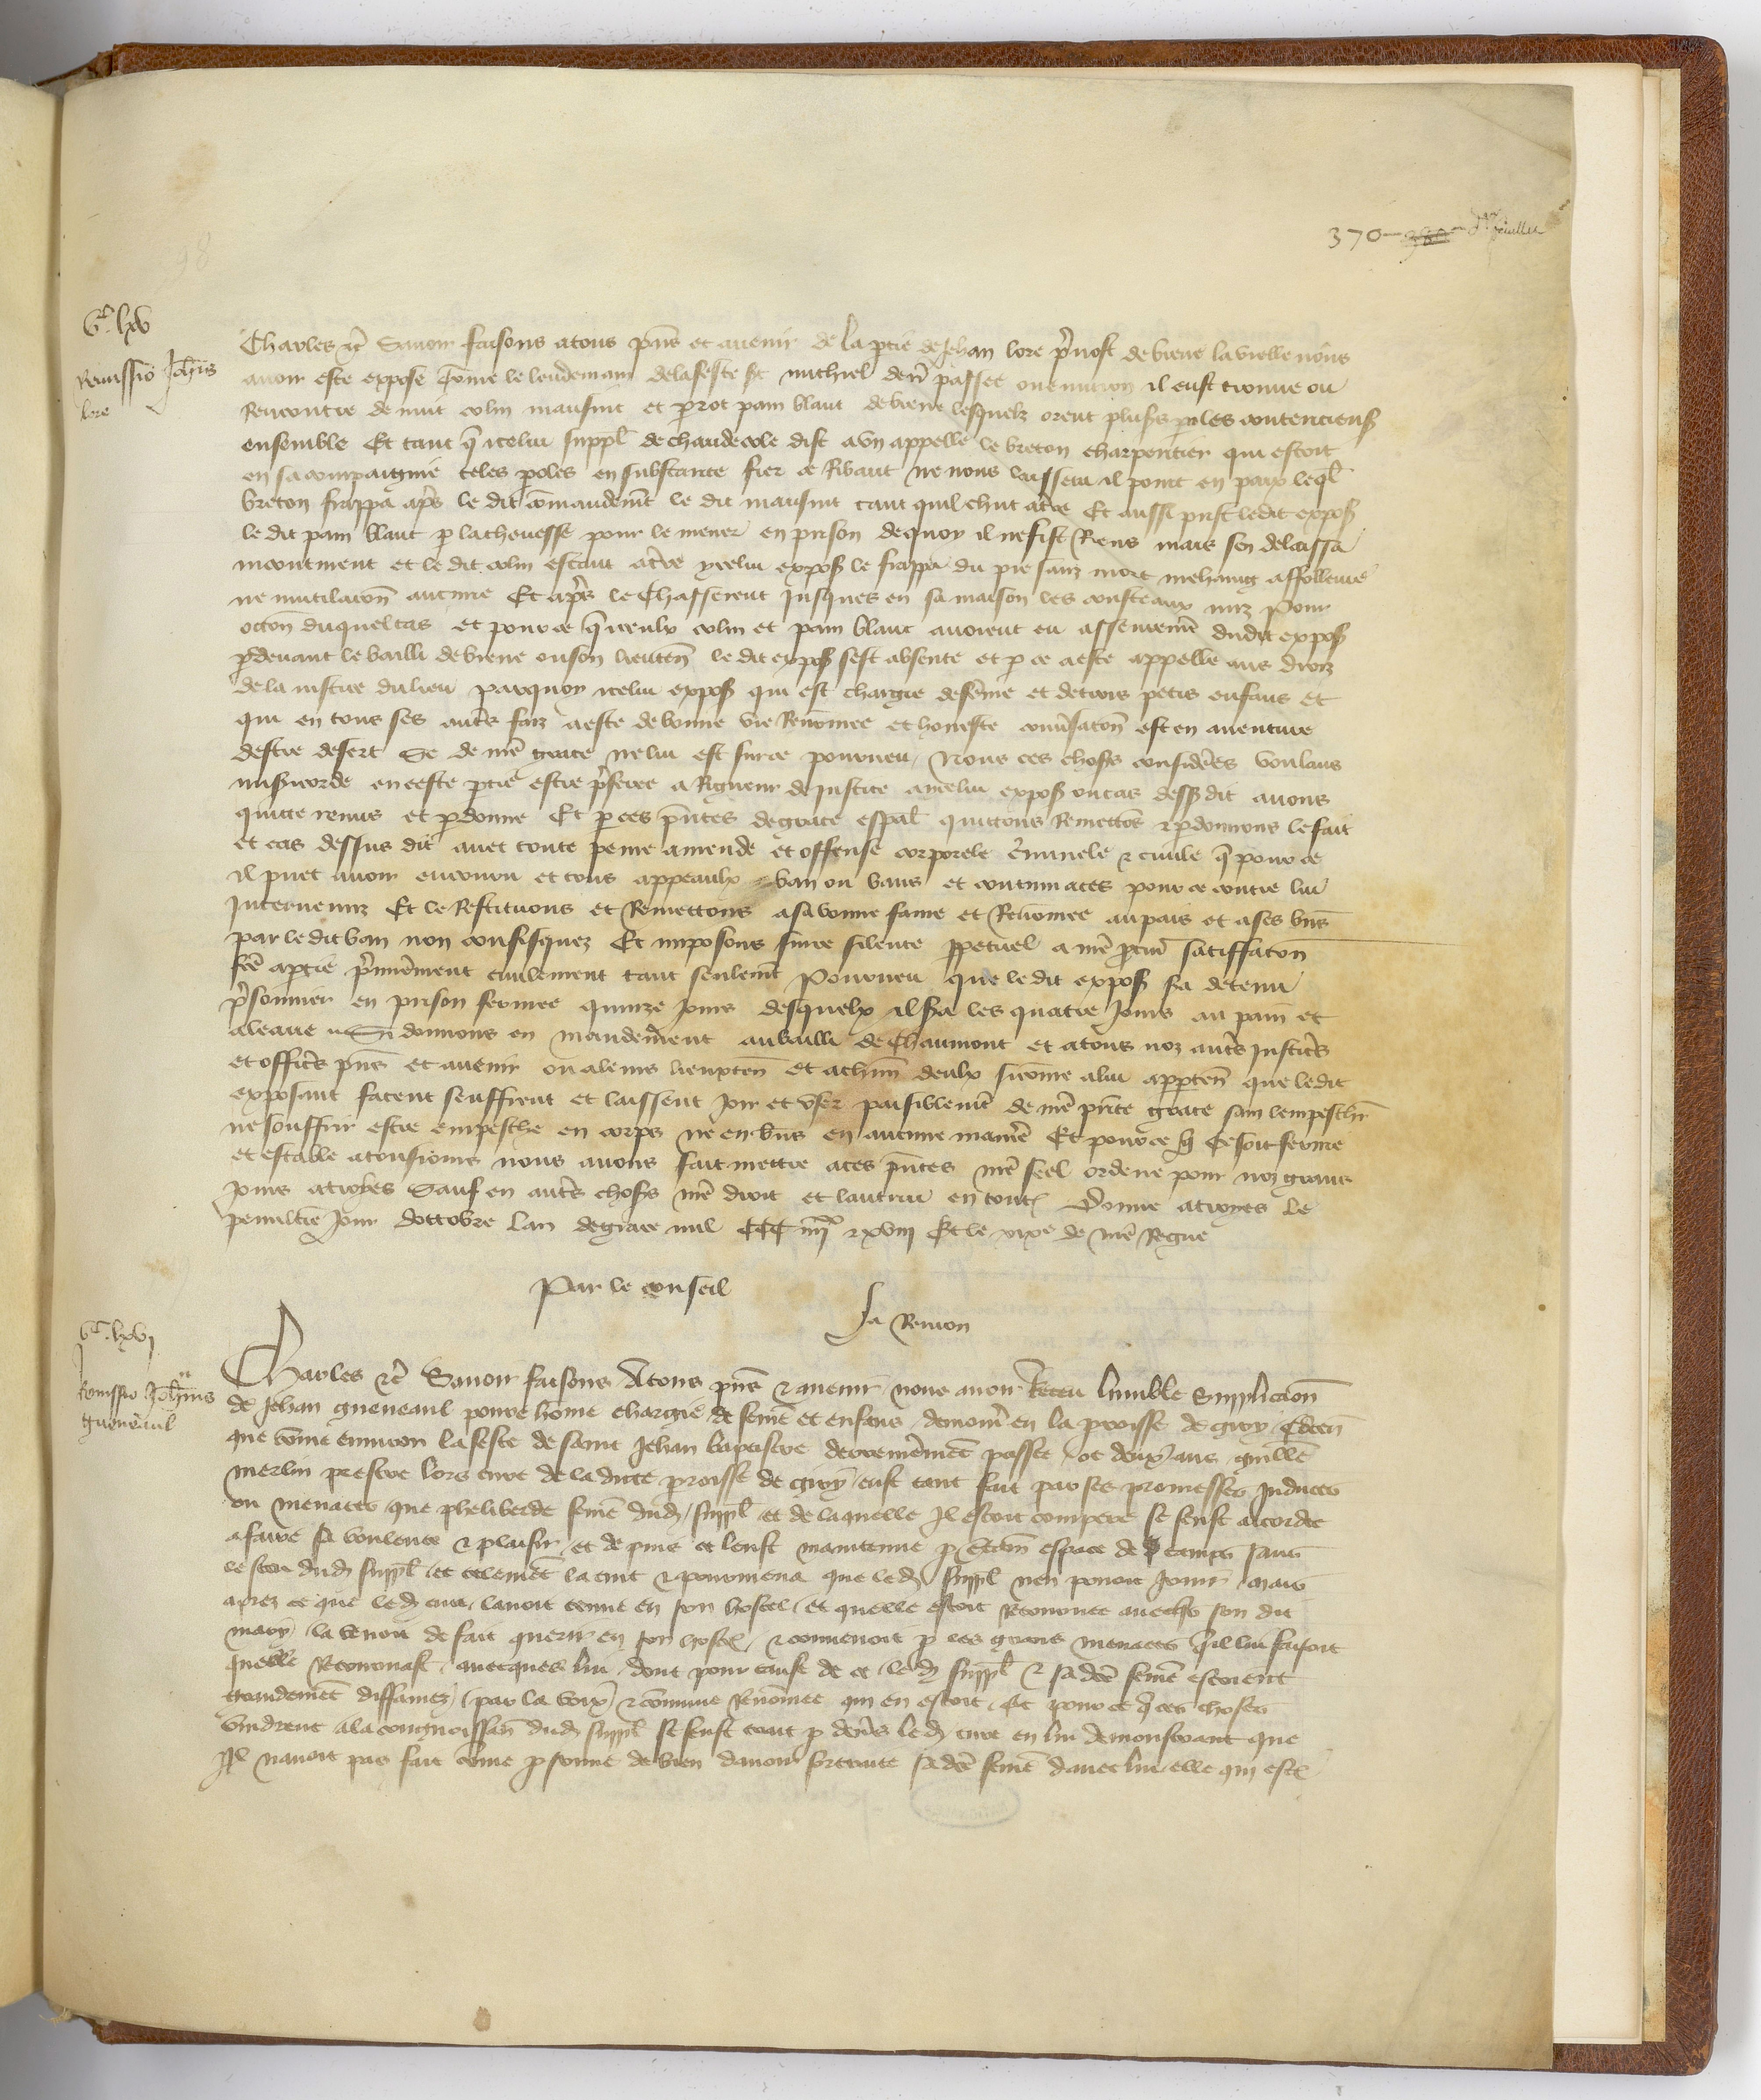 370 - 380 - dr feuillet
Vc. lxv
Remissio Joh̄is
lore
Charles etc̄ Savoir faisons a tous pn̄s et avenir de la p̄tie de Jehan lore p̄vost de biene la vielle nous
avoir este expose Com̄e le lendemain de la feste st̄ michiel den̄ passee ou environ il eust trouve ou
Rencontre de nuit colin mausint et perot pain blanc de biene lesquelx orent plus̄s p̄oles contencieus̄
ensemble Et tant q̄ icelui suppl̄ de chaude cole dist a un appelle le breton charpentier qui estoit
en sa compaignie teles p̄oles en substance fier ce Ribaut ne nous laissera il point en paix leq̄l
breton frappa ap̄s le dit com̄andem̄t le dit mausint tant quil chut a t̄re Et aussi prist ledit expos̄
le dit pain blanc p̄ la chevesse pour le mener en prison de quoy il ne fist Riens mais sen delaissa
incontinent et le dit colin estant a t̄re ycelui expos̄ le frappa du pie sanz mort mehaing affolleure
ne mutilacion̄ aucune Et ap̄s le Chasserent Jusques en sa maison les cousteaux nuz Pour
occōn duquel cas et pour ce q̄ iceulx colin et pain blanc avoient eu asseurem̄t dudit expos̄
p̄devant le bailli de biene ou son lieuten̄ le dit expos̄ sest absente et p̄ ce a este appelle aus droiz
de la justice du lieu parquoy icelui expos̄ qui est chargie de fem̄e et de trois petis enfans et
qui en tous ses aut̄s faiz a este de bonne vie Renommee et honeste conv̄sacōn est en aventure
destre desert Se de n̄re grace ne lui est sur ce pourveu Nous ces choses consider̄es voulans
mis̄icorde en ceste p̄tie estre p̄feree a Rigueur de Justice a icelui expos̄ ou cas dess̄ dit avons
quitte remis et p̄donne Et p̄ ces p̄ntes de grace esp̄al quittons Remettōs et p̄donnons le fait
et cas dessus dit avec toute peine amende et offense corporele c̄minele et civile q̄ pour ce
il puet avoir encouru et tous appeaulx ban ou bans et contumaces pour ce contre lui
Intervenuz Et le Restituons et Remettons a sa bonne fame et Renom̄ee au pais et a ses bn̄s
par le dit ban non confisquez Et imposons sur ce silence p̄petuel a n̄re p̄cur̄ satiffacōn
fc̄e a p̄tie p̄mierement civilement tant seulem̄t Pourveu que le dit expos̄ s̄a detenu
p̄sonnier en prison fermee quinze jours desquelx il s̄a les quatre Jours au pain et
a leaue Si donnons en mandement au bailli de Chaumont et a tous noz aut̄s justic̄s
et offic̄s pn̄s et avenir ou a leurs lieuxten̄ et a ch̄un deulx si com̄e a lui app̄ten̄ que ledit
exposant facent seuffrent et laissent joir et user paisiblem̄t de n̄re p̄nte grace sanz lempesch̄r
ne souffrir estre empesche en corps ne en b̄ns en aucune manie͂re Et pour ce q̄ Ce soit ferme
et estable a tousjours nous avons fait mettre a ces p̄ntes n̄re seel ordene pour noz grans
Jours a troyes Sauf en aut̄s choses n̄re droit et lautrui en toutes Donne a troyes le
penultie͂ Jour doctobre lan de grace mil CCC iiiixx et xviii Et le xixe de n̄re Regne
Par le conseil
Ja Remon
Vc. lxvi
Remissio Joh̄is
gueneaul
Charles etc̄ Savoir faisons A tous pn̄s et avenir nous avoir Receu lumble Supplicacion̄
de Jehan gueneaul povre hom̄e chargie de fem̄e et enfans demour̄ en la p̄roisse de giry Conten̄
que com̄e environ la feste de saint Jehan baptistre derrenierem̄t passee ot deux ans guill̄e
merlin prestre lors cure de la dicte p̄roisse de giry eust tant fait par ses promesses Induces
ou menaces que pheliberde fem̄e dud̄ suppl̄ et de laquelle Il estoit compere se feust acordee
a faire sa voulente et plaisir et depuis ce leust maintenue p̄ c̄tain espace de temps sans
le sceu dud̄ suppl̄ et telem̄t la tint et pourmena que led̄ suppl̄ nen povoit Jouir mais
aprez ce que led̄ cure lavoit tenue en son hostel et quelle estoit Retournee avecques son dit
mary la venoit de fait querir en son hostel et convenoit p̄ les grans menaces q̄ il lui faisoit
quelle Retournast avecques lui dont pour cause de ce led̄ suppl̄ et sa dc̄e fem̄e estoient
grandem̄t diffamez par la voix et com̄une Renom̄ee qui en estoit Et pour ce q̄ ces choses
vindrent a la congnoissan̄ dud̄ suppl̄ se feust trait p̄ dev̄s led̄ cure en lui demonstrant que
Il navoit pas fait com̄e p̄sonne de bien davoir fortraite sa dc̄e fem̄e davec lui elle qui est